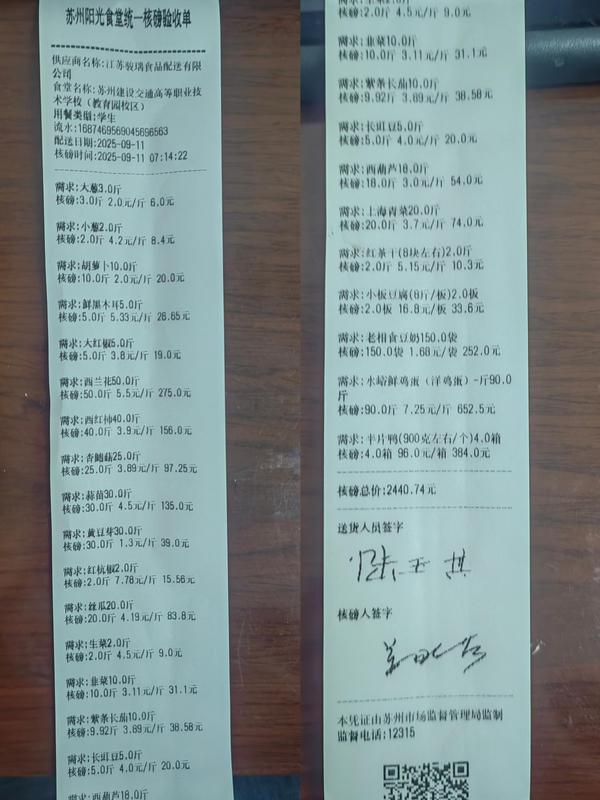 苏州阳光食堂统一核磅验收单
供应商名称:江苏骏瑀食品配送有限
公司
食堂名称:苏州建设交通高等职业技
术学校（教育园校区）
用餐类型:学生
流水:1687469569045696563
配送日期:2025-09-11
核磅时间:2025-09-11 07:14:22
需求:大葱3.0斤
核磅:3.0斤 2.0元/斤 6.0元
需求:小葱2.0斤
核磅:2.0斤 4.2元/斤 8.4元
需求:胡萝卜10.0斤
核磅:10.0斤 2.0元/斤 20.0元
需求:鲜黑木耳5.0斤
核磅:5.0斤 5.33元/斤 26.65元
需求:大红椒5.0斤
核磅:5.0斤 3.8元/斤 19.0元
需求:西兰花50.0斤
核磅:50.0斤 5.5元/斤 275.0元
需求:西红柿40.0斤
核磅:40.0斤 3.9元/斤 156.0元
需求:杏鲍菇25.0斤
核磅:25.0斤 3.89元/斤 97.25元
需求:蒜苗30.0斤
核磅:30.0斤 4.5元/斤 135.0元
需求:黄豆芽30.0斤
核磅:30.0斤 1.3元/斤 39.0元
需求:红杭椒2.0斤
核磅:2.0斤 7.78元/斤 15.56元
需求:丝瓜20.0斤
核磅:20.0斤 4.19元/斤 83.8元
需求:生菜2.0斤
核磅:2.0斤 4.5元/斤 9.0元
需求:韭菜10.0斤
核磅:10.0斤 3.11元/斤 31.1元
需求:紫条长茄10.0斤
核磅:9.92斤 3.89元/斤 38.58元
需求:长豇豆5.0斤
核磅:5.0斤 4.0元/斤 20.0元
需求:西葫芦18.0斤
核磅:2.0斤 4.5元/斤 9.0元
需求:韭菜10.0斤
核磅:10.0斤 3.11元/斤 31.1元
需求:紫条长茄10.0斤
核磅:9.92斤 3.89元/斤 38.58元
需求:长豇豆5.0斤
核磅:5.0斤 4.0元/斤 20.0元
需求:西葫芦18.0斤
核磅:18.0斤 3.0元/斤 54.0元
需求:上海青菜20.0斤
核磅:20.0斤 3.7元/斤 74.0元
需求:红茶干(8块左右)2.0斤
核磅:2.0斤 5.15元/斤 10.3元
需求:小板豆腐(8斤/板)2.0板
核磅:2.0板 16.8元/板 33.6元
需求:老相食豆奶150.0袋
核磅:150.0袋 1.68元/袋 252.0元
需求:水峪鲜鸡蛋（洋鸡蛋）-斤90.0
斤
核磅:90.0斤 7.25元/斤 652.5元
需求:半片鸭(900克左右/个)4.0箱
核磅:4.0箱 96.0元/箱 384.0元
核磅总价:2440.74元
送货人员签字
核磅人签字
本凭证由苏州市场监督管理局监制
监督电话:12315